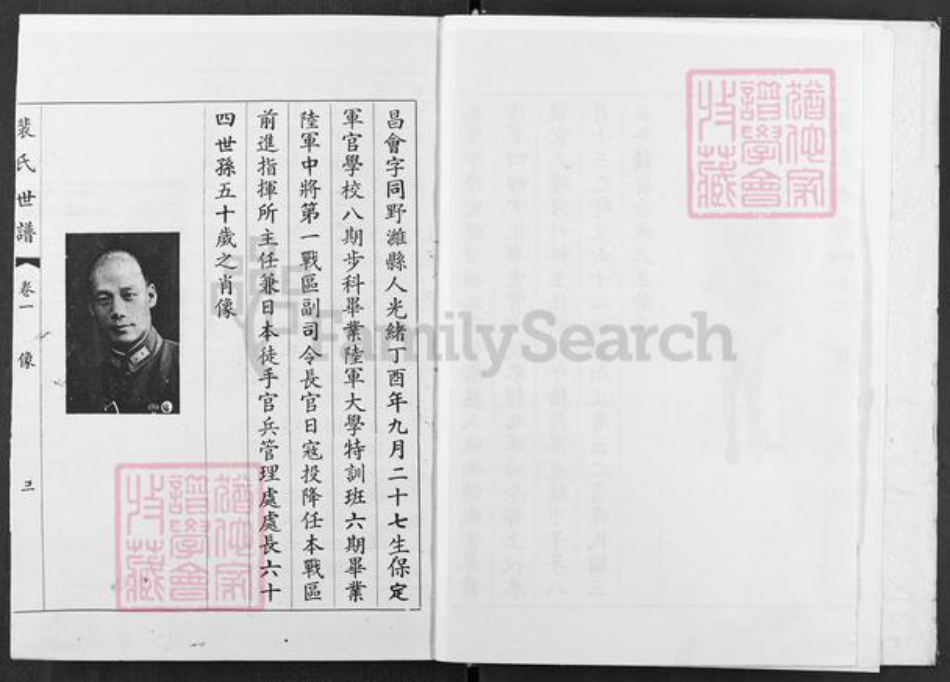 昌會字同野濰縣人光緒丁酉年九月二十七生保定
軍官學校八期步科畢業陸軍大學特訓班六期畢業
陸軍中將第一戰區副司令長官日寇投降任本戰區
前進指揮所主任兼日本徒手官兵管理處處長六十
四世孫五十歲之肖像
裴氏世譜
卷一
像
三
FamilySearch
猶他家
譜學會
收藏
猶他家
譜學會
收藏